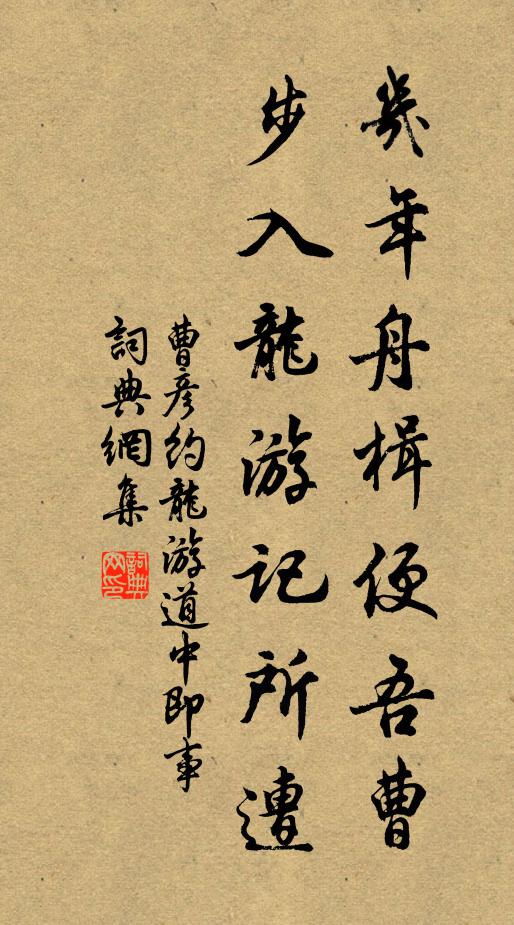 幾年舟楫便吾曹
步入龍游記所遭
曹彦約龍游道中即事
詞典網集
詞典網印